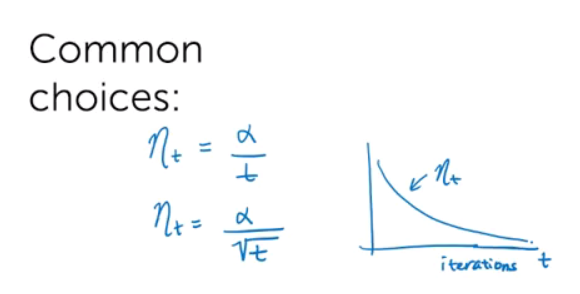 Common
choices:
η_t = α/t
η_t = α/√t
η_t
iterations t